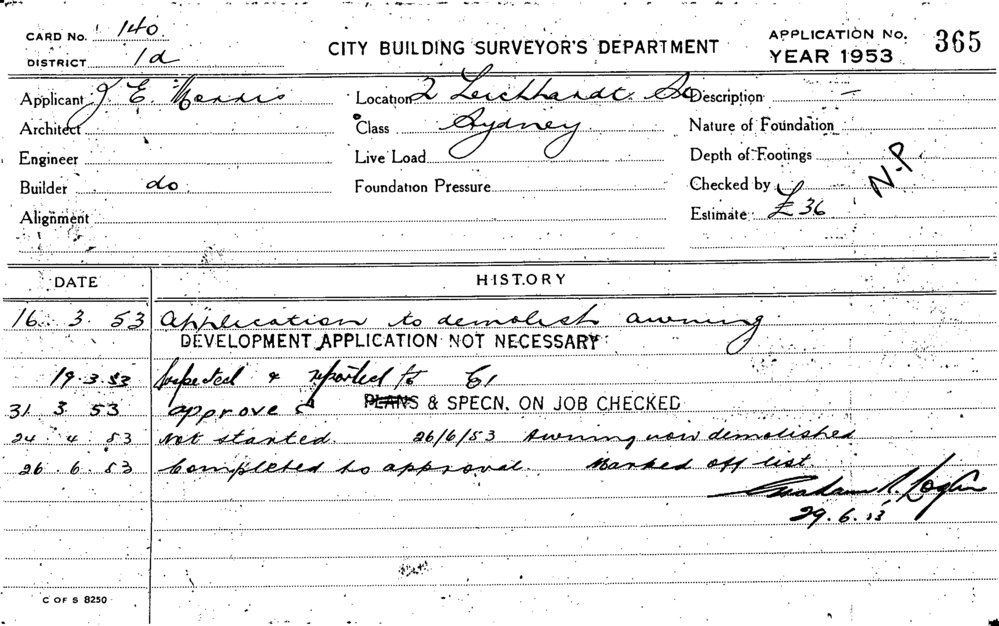 CARD No. 140.
DISTRICT 1d
CITY BUILDING SURVEYOR'S DEPARTMENT
APPLICATION No. 365
YEAR 1953
Applicant J E Morris
Location 2 Leichhardt St
Description —
Architect
Class Sydney
Nature of Foundation
Engineer
Live Load
Depth of Footings
Builder do
Foundation Pressure
Checked by
N.P
Alignment
Estimate £36
DATE HISTORY
16. 3. 53 Application to demolish awning
DEVELOPMENT APPLICATION NOT NECESSARY
19.3.53 Inspected & reported to
31 3. 53 approved PLANS & SPECN. ON JOB CHECKED
24 4. 53 Not started. 26/6/53 Awning now demolished
26. 6. 53 Completed to approval. Marked off list.
29.6.53
C OF S 8250